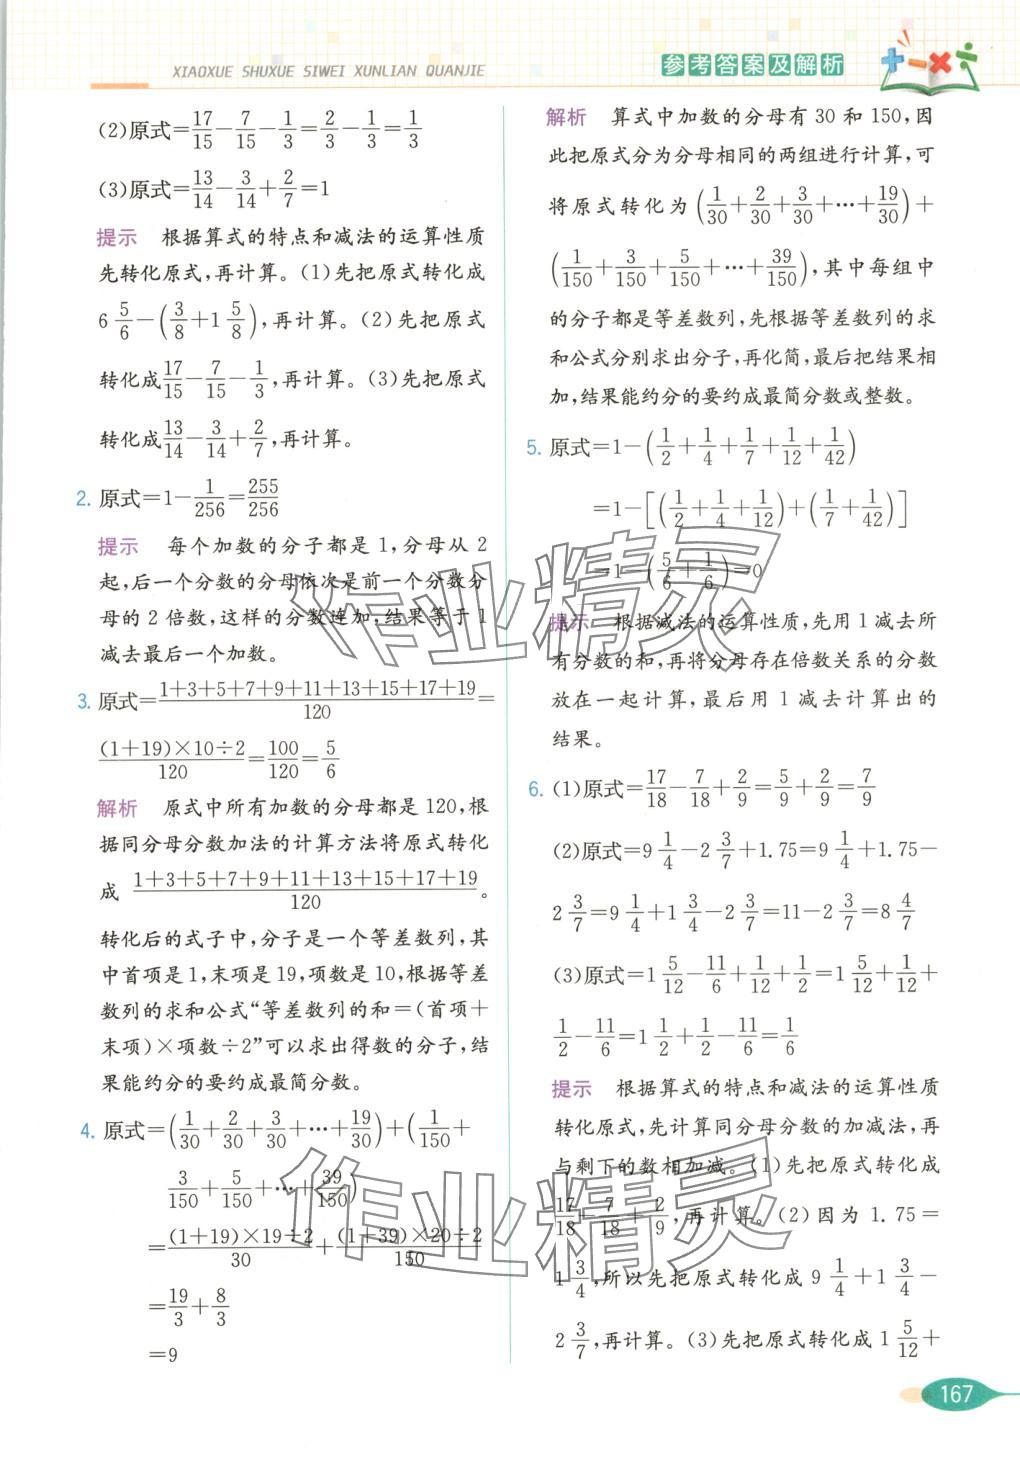 XIAOXUE SHUXUE SIWEI XUNLIAN QUANJIE
参考答案及解析
(2)原式=17/15-7/15-1/3=2/3-1/3=1/3
(3)原式=13/14-3/14+2/7=1
提示 根据算式的特点和减法的运算性质
先转化原式,再计算。(1)先把原式转化成
6 5/6-(3/8+1 5/8),再计算。(2)先把原式
转化成17/15-7/15-1/3,再计算。(3)先把原式
转化成13/14-3/14+2/7,再计算。
2. 原式=1-1/256=255/256
提示 每个加数的分子都是1,分母从2
起,后一个分数的分母依次是前一个分数分
母的2倍数,这样的分数连加,结果等于1
减去最后一个加数。
3. 原式=(1+3+5+7+9+11+13+15+17+19)/120=
((1+19)×10÷2)/120=100/120=5/6
解析 原式中所有加数的分母都是120,根
据同分母分数加法的计算方法将原式转化
成 (1+3+5+7+9+11+13+15+17+19)/120。
转化后的式子中,分子是一个等差数列,其
中首项是1,末项是19,项数是10,根据等差
数列的求和公式“等差数列的和=(首项+
末项)×项数÷2”可以求出得数的分子,结
果能约分的要约成最简分数。
4. 原式=(1/30+2/30+3/30+…+19/30)+(1/150+
3/150+5/150+…+39/150)
=((1+19)×19÷2)/30+((1+39)×20÷2)/150
=19/3+8/3
=9
解析 算式中加数的分母有30和150,因
此把原式分为分母相同的两组进行计算,可
将原式转化为(1/30+2/30+3/30+…+19/30)+
(1/150+3/150+5/150+…+39/150),其中每组中
的分子都是等差数列,先根据等差数列的求
和公式分别求出分子,再化简,最后把结果相
加,结果能约分的要约成最简分数或整数。
5. 原式=1-(1/2+1/4+1/7+1/12+1/42)
=1-[(1/2+1/4+1/12)+(1/7+1/42)]
=1-(5/6+1/6)=0
提示 根据减法的运算性质,先用1减去所
有分数的和,再将分母存在倍数关系的分数
放在一起计算,最后用1减去计算出的
结果。
6. (1)原式=17/18-7/18+2/9=5/9+2/9=7/9
(2)原式=9 1/4-2 3/7+1.75=9 1/4+1.75-
2 3/7=9 1/4+1 3/4-2 3/7=11-2 3/7=8 4/7
(3)原式=1 5/12-11/6+1/12+1/2=1 5/12+1/12+
1/2-11/6=1 1/2+1/2-11/6=1/6
提示 根据算式的特点和减法的运算性质
转化原式,先计算同分母分数的加减法,再
与剩下的数相加减。(1)先把原式转化成
17/18-7/18+2/9,再计算。(2)因为1.75=
1 3/4,所以先把原式转化成9 1/4+1 3/4-
2 3/7,再计算。(3)先把原式转化成1 5/12+
167
作业精灵
作业精灵